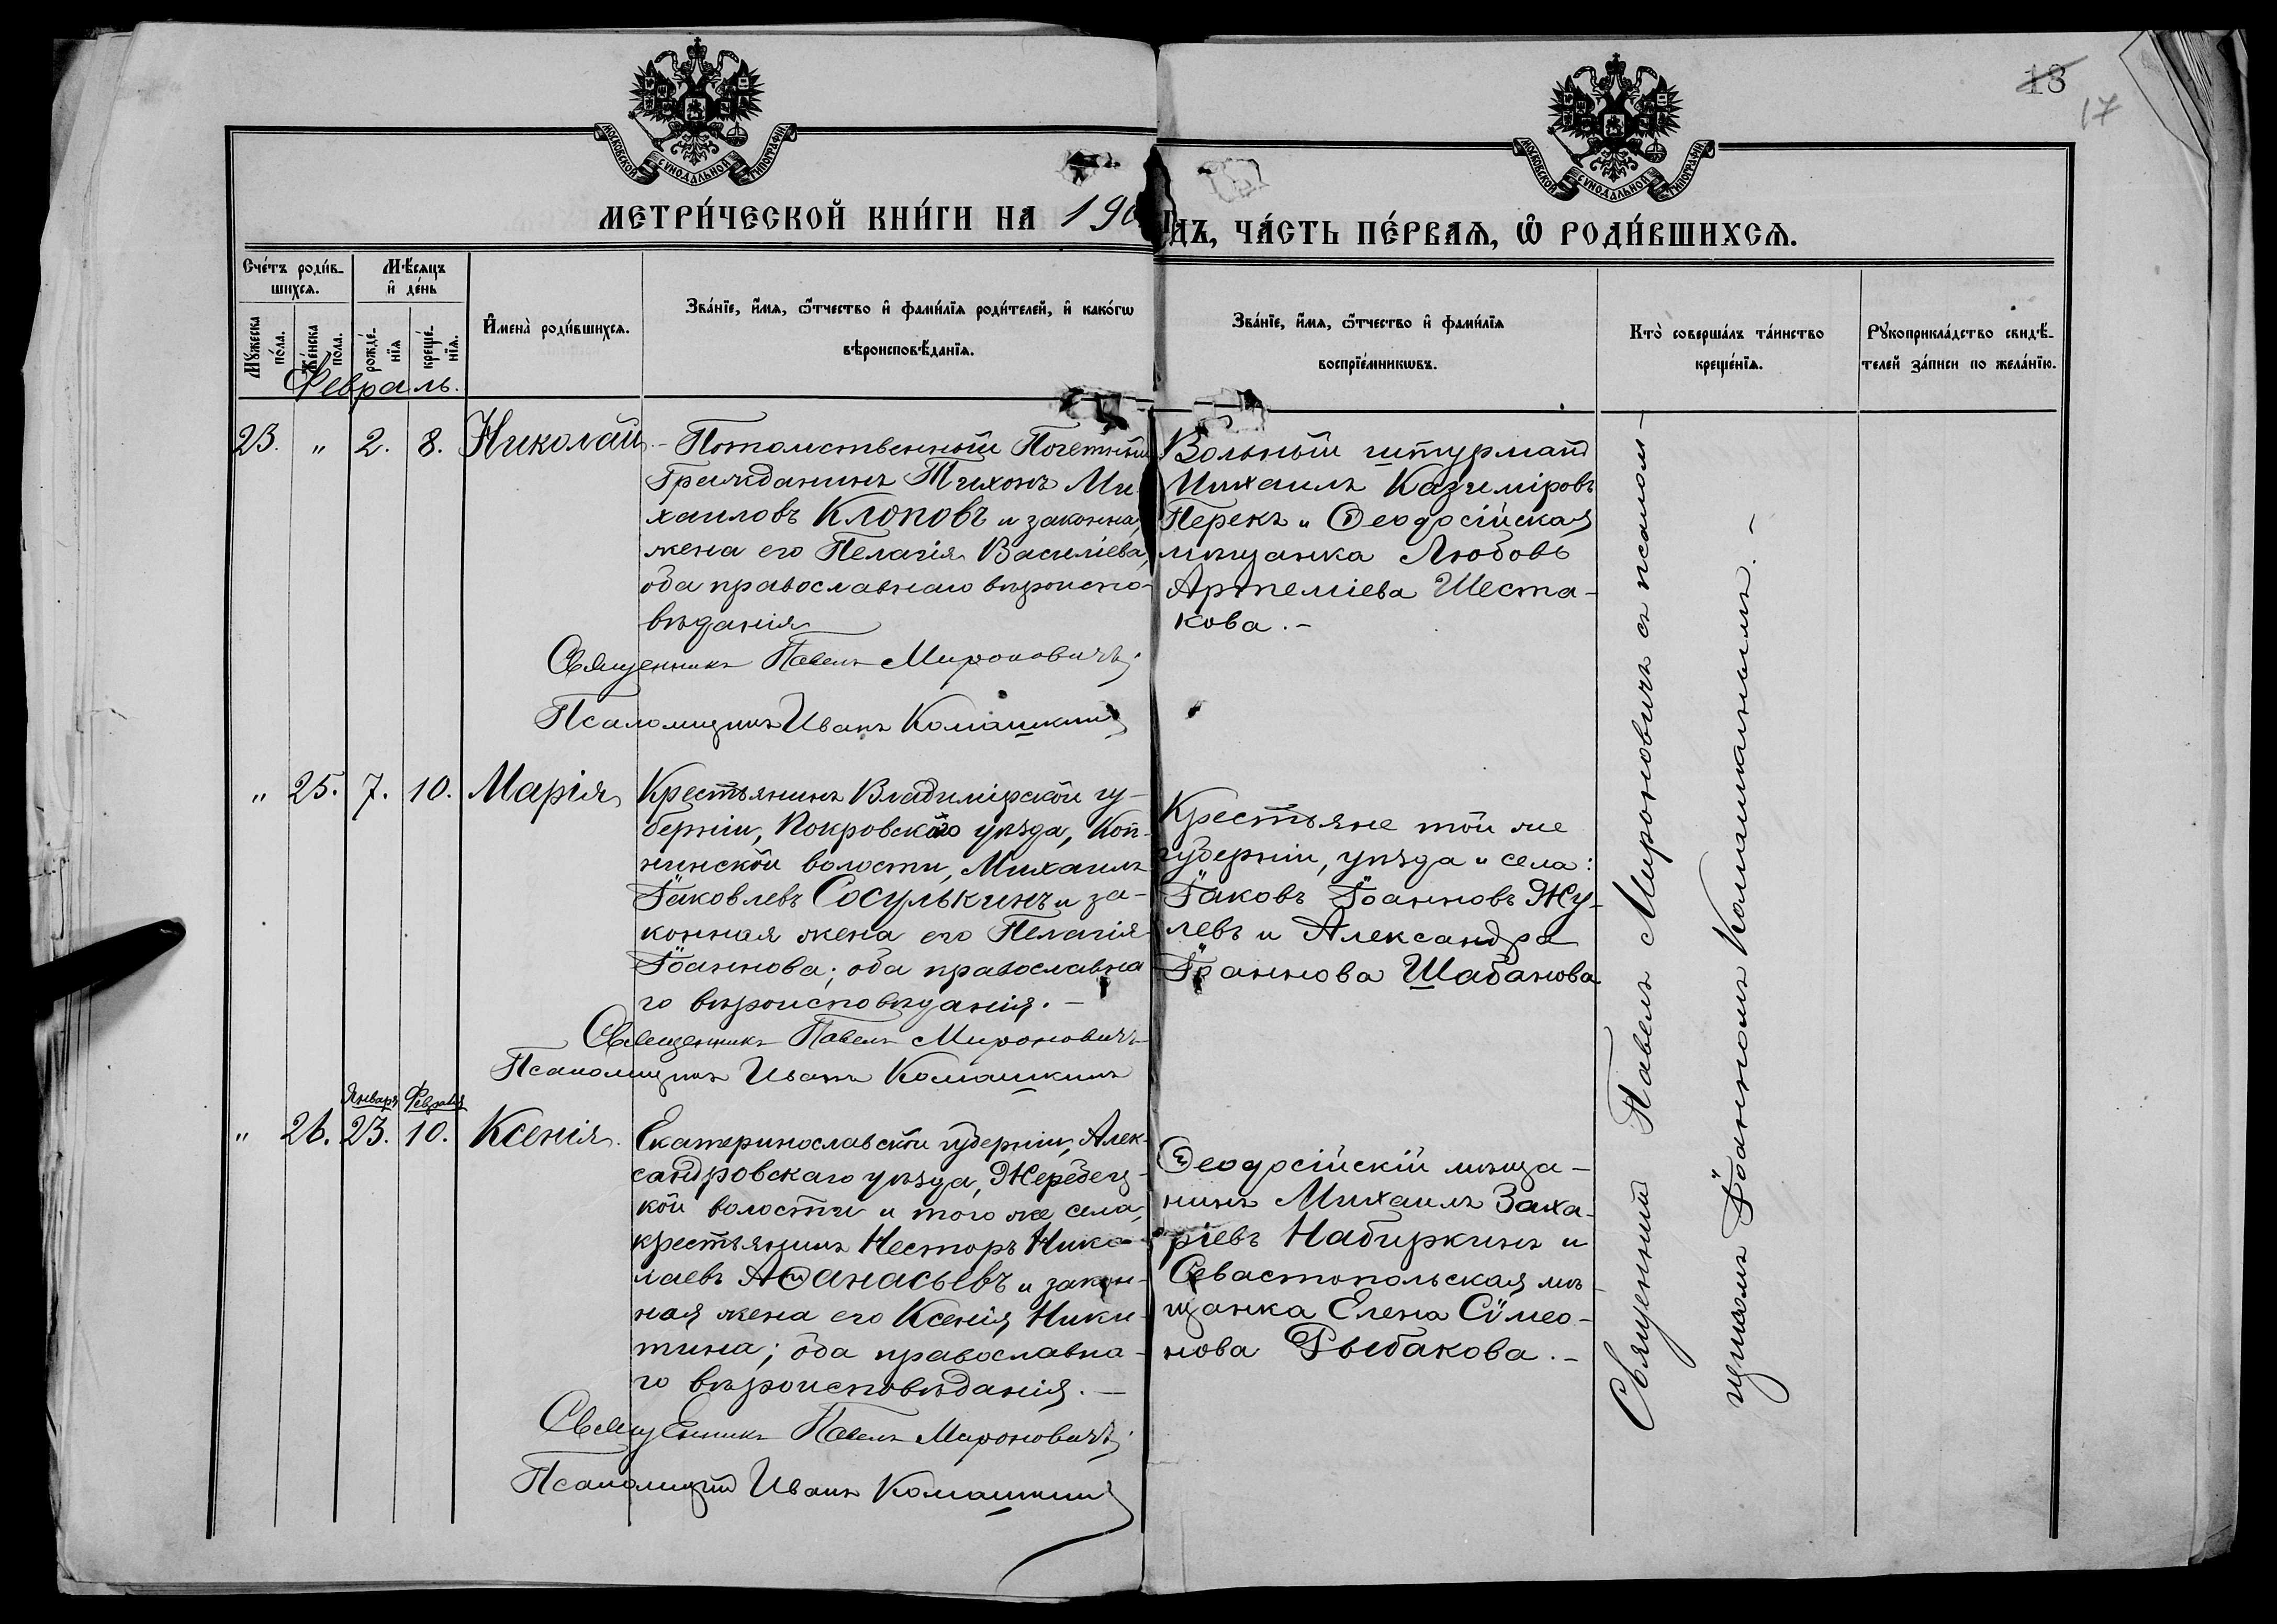 МОСКОВСКОЙ СѴНОДАЛЬНОЙ ТИПОГРАФІИ
МОСКОВСКОЙ СѴНОДАЛЬНОЙ ТИПОГРАФІИ
13
17
МЕТРИ́ЧЕСКОЙ КНИ́ГИ НА 190
ДЪ, ЧА́СТЬ ПЕ́РВАѦ, Ѡ҆ РОДИ́ВШИХСѦ.
Сче́тъ роди́в-
шихсѧ.
Мѣ́сѧцъ
и҆ де́нь
Мꙋжеска
по́ла.
Же́нска
пола.
рожде́-
нїѧ
креще́-
нїѧ.
И҆мена̀ роди́вшихсѧ.
Зва́нїе, и҆́мѧ, ѻ҆́тчество и҆ фами́лїѧ роди́телей, и҆ како́гѡ
вѣроисповѣ́данїѧ.
Зва́нїе, и҆́мѧ, ѻ҆́тчество и҆ фами́лїѧ
воспрїе́мникѡвъ.
Кто̀ соверша́лъ та́инство
креще́нїѧ.
Рꙋкоприкла́дство свидѣ́-
телей за́писи по жела́нїю.
Февраль.
23. " 2. 8. Николай
- Потомственный Почетный
Гражданинъ Тихонъ Ми
хаиловъ Клоповъ и законна
жена его Пелагія Васильева,
оба православнаго вѣроиспо-
вѣданія
Священникъ Павелъ Мироновичъ;
Псаломщикъ Иванъ Комашкинъ
Вольный штурманъ
Михаилъ Казиміровъ
Перекъ и Ѳеодосійская
мѣщанка Любовь
Артеміева Шеста-
кова. -
" 25. 7. 10. Марія
Крестьянинъ Владимірской гу-
берніи, Покровскаго уѣзда, Коп-
нинской волости, Михаилъ
Іаковлевъ Сосулькинъ и за-
конная жена его Пелагія
Іоаннова; оба православна
го вѣроисповѣданія. -
Священникъ Павелъ Мироновичъ
Псаломщикъ Иванъ Комашкинъ
Крестьяне той же
губерніи, уѣзда и села:
Іаковъ Іоанновъ Жу-
левъ и Александра
Іоаннова Шабанова
Январь Февраля
" 26. 23. 10. Ксенія.
Екатеринославской губерніи, Алек-
сандровскаго уѣзда, Жеребец-
кой волости и того же села,
крестьянинъ Несторъ Нико-
лаевъ Аѳанасьевъ и закон-
ная жена его Ксенія Ники-
тина; оба православна-
го вѣроисповѣданія. -
Священникъ Павелъ Мироновичъ;
Псаломщикъ Иванъ Комашкинъ
Ѳеодосійскій мѣща-
нинъ Михаилъ Заха-
ріевъ Набиркинъ и
Севастопольская мѣ
щанка Елена Сѵмео-
нова Рыбакова. -
Священникъ Павелъ Мироновичъ съ псалом-
щикомъ Іоанномъ Комашкинымъ. -